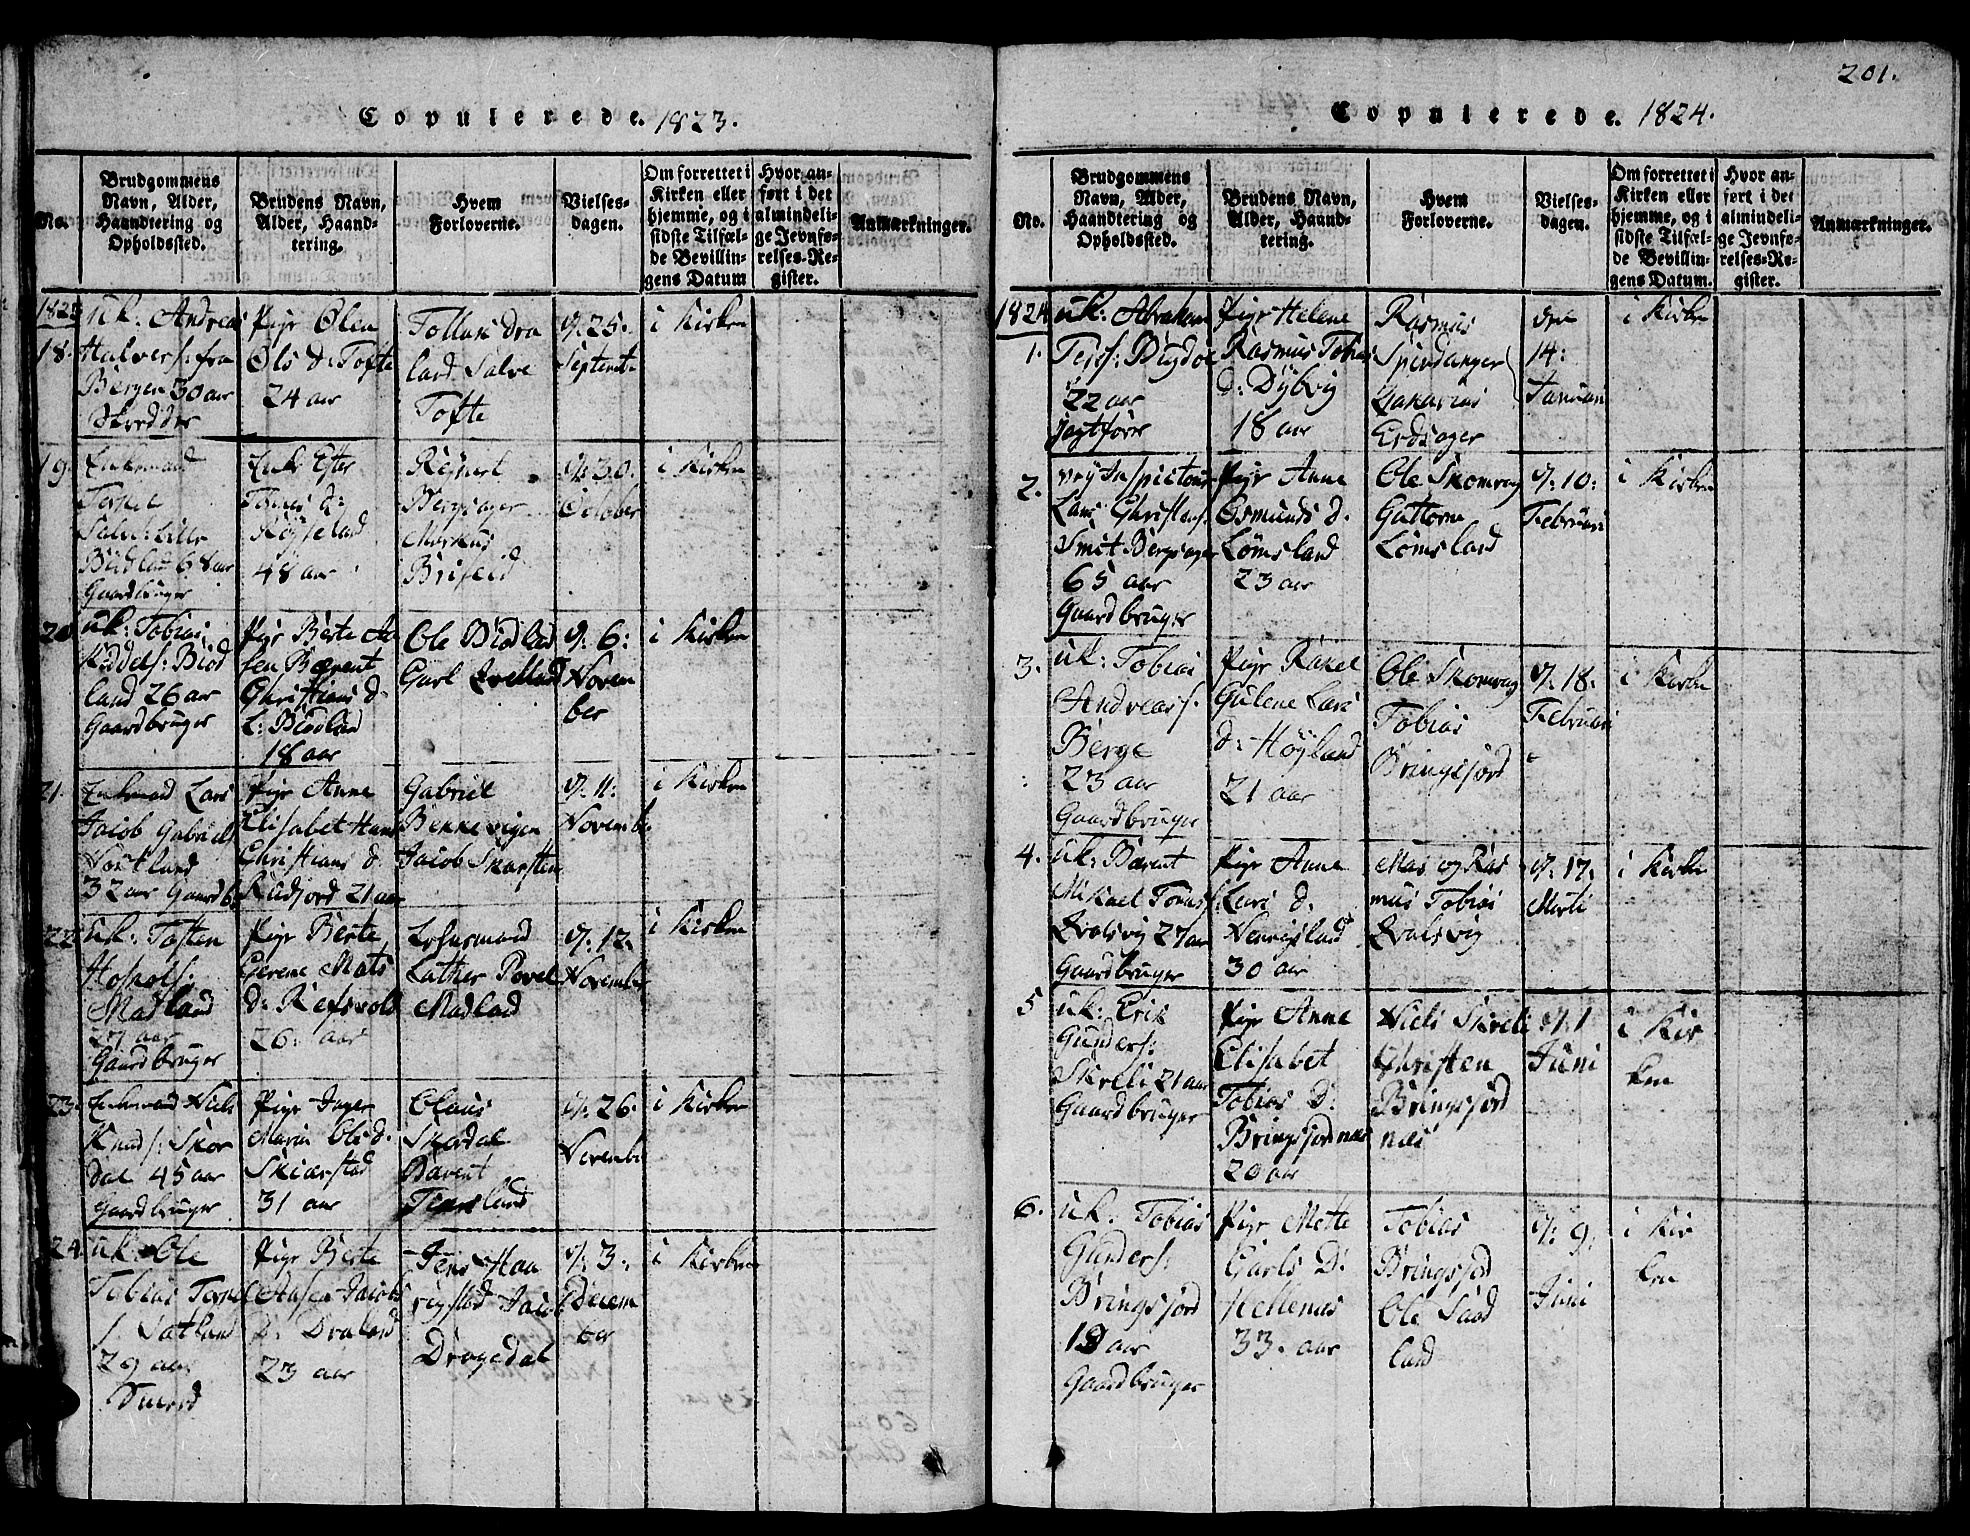 Copulerede. 1823.
No.
Brudgommens Navn, Alder, Haandtering og Opholdssted.
Brudens Navn, Alder, Haandtering.
Hvem Forloverne.
Vielsesdagen.
Om forrettet i Kirken eller hjemme, og i sidste Tilfælde Bevillingens Datum
Hvor anført i det almindelige Jevnførelses-Register.
Anmærkninger.
1823
18.
uk: Andreas
Halvers: fra
Bergen 30 aar
Skredder
Pige Olen
Ols d: Tofte
24 aar
Tollak Dra
land Salve
Tofte
d: 25.
Septemb
i Kirken
19.
Enkemand
Salve: Lille
Büdland 68 aar
Gaardbruger
Enke Efter
Tones d:
Røysseland
48 aar
Reinert
Bergsager
Markus
Briseid
d: 30.
October
i Kirken
20
uk: Tobias
Keddels: Biod
land 26 aar
Gaardbruger
Pige Berte Aa
sen Barent
Christians d.
L: Biodland
18 aar
Ole Biodland
Carl
d: 6:
Novem
ber
i Kirken
21.
Enkemand Lars
Jacob Gabriels
32 aar Gaardb
Pige Anne
Elisabet Hans
Christians d.
Rødfjord 21 aar
Gabriel
Bekkevigen
Jacob Skarsten
d: 11:
Novemb.
i Kirken
22
uk: Tosten
Madland
27 aar
Gaardbruger
Pige Berte
Serene Mats
d: Refsvold
26. aar
Lensmand
Lather Povel
Madland
d: 12.
November
i Kirken
23.
Enkemand Niels
Knuds: Skor
dal 45 aar
Gaardbruger
Pige Inger
Maria Ols d.
Skiærstad
31 aar
Claus
Skordal
Barent
d: 26.
Novemb
i Kirken
24.
uk Ole
Tobias Terkel
s. Satland
29 aar
Pige Berte
Aasen Jacobs
D: Draland
23 aar
Jens Haa
rigstad Jacob
Dragedal
d: 3:
Decem
ber
i Kirken
201.
Copulerede. 1824.
No.
Brudgommens Navn, Alder, Haandtering og Opholdssted.
Brudens Navn, Alder, Haandtering.
Hvem Forloverne.
Vielsesdagen.
Om forrettet i Kirken eller hjemme, og i sidste Tilfælde Bevillingens Datum.
Hvor anført i det almindelige Jevnførelses-Register.
Anmærkninger.
1824
1.
uk: Abraham
Bugdøe
22 aar
jagtfører
Pige Helene
Rasmus Tobias
d: Dybvig
18 aar
Rasmus
Spindanger
Zakarias
Erdsager
den
14:
Januari
i Kirken
2.
Lars Christens.
Smit Bergsager
65 aar
Gaardbruger
Pige Anne
Osmunds d.
Lømsland
23 aar
Ole Skomrag
Guttorm
Lømsland
d: 10:
Februari
i Kirken
3.
uk: Tobias
Andreass.
Berge
23 aar
Gaardbruger
Pige Rakel
Gulene Lars
d: Høyland
21 aar
Ole Skomrag
Tobias
Bringsjord
d: 18.
Februari
i Kirken
4.
uk: Barent
Mikael Tønness.
Qvalsvig 27 aar
Gaardbruger
Pige Anne
Lars d.
Vennisland
30 aar
Mas og Ras
mus Tobias
Qvalsvig
d: 17.
Marti
i Kirken
5
uk: Erik
Gunders:
Skreli 21 aar
Gaardbruger
Pige Anne
Elisabet
Tobias D:
Bringsjordnæs
20 aar
Niels Skreli
Christen
Bringsjord
næs
d: 1
Juni
i Kir
ken
6.
uk. Tobias
Gunders:
Bringsjord
19 aar
Gaardbruger
Pige Mette
Carls D:
Hellenæs
33. aar
Tobias
Bringsjord
Ole Saad
land
d: 9:
Juni
i Kir
ken